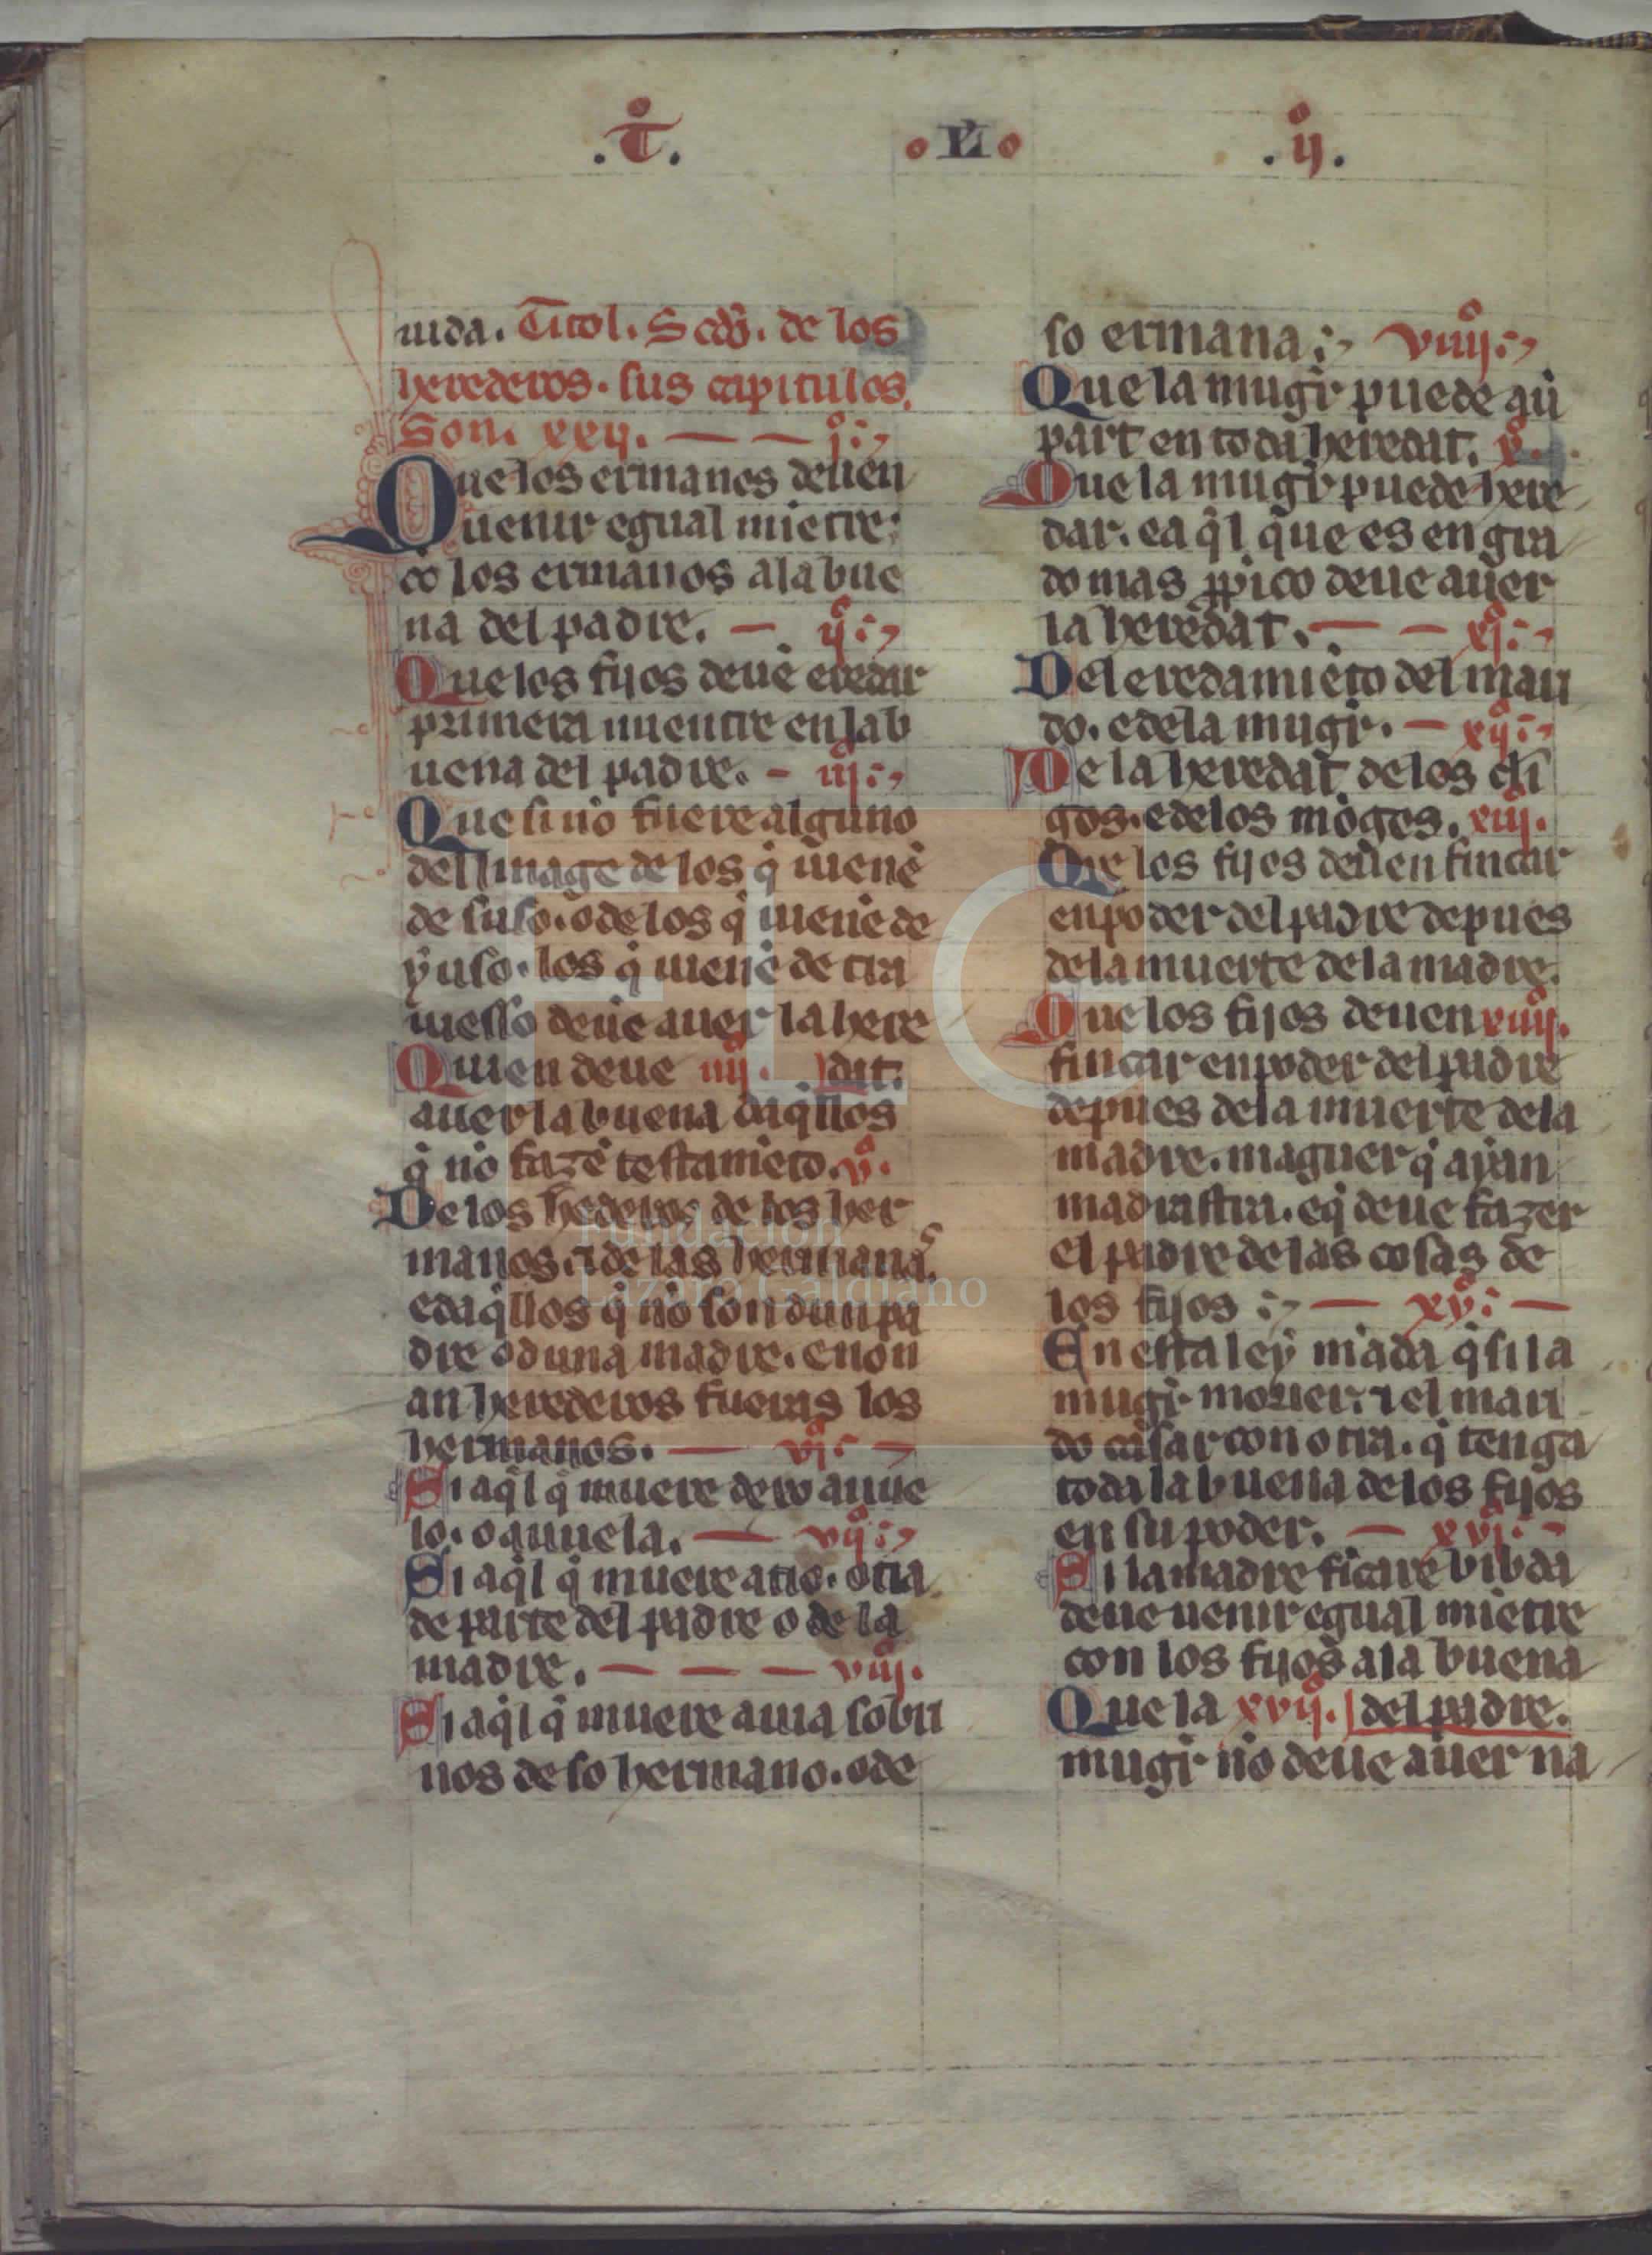 .T̊. .L̃I. .ij̊.
uida. Titol. Scdo. de los
herederos. sus capitulos.
Son. xxij. — — j̊.
Que los ermanos deuen
uenir egual mietre.
co los ermanos ala bue
na del padre. — ij̊.
Que los fijos deuē eredar
primera mientre en la b
uena del padre. - iij̊.
Que si nō fuere alguno
del linage de los q̄ uienē
de suso. o de los q̄ uienē de
yuso. los q̄ uienē de tra
uesso deuē auer la here
Quien deue iiij̊. dat.
auer la buena daq̄llos
q̄ nō fazē testamēto. v̊.
De los hederos de los her
manos. ⁊ de las hermanas.
e daq̄llos q̄ nō son dun pa
dre o duna madre. e non
an herederos fueras los
hermanos. — vj̊. —
Si aq̄l q̄ muere dexo auue
lo. o auuela. — vij̊.
Si aq̄l q̄ muere a tio. o tia
de parte del padre o de la
madre. — — — viij̊.
Si aq̄l q̄ muere auia sobri
nos de so hermano. o de
so ermana. viiij̊.
Que la mugir puede aū
part en toda heredat. x̊.
Que la mugir puede here
dar. e aq̄l que es en gra
do mas ꝓpico deue auer
la heredat. — — xj̊.
Del eredamiēto del mari
do. e de la mugir. — xij̊.
De la heredat de los cl̄i
gos. e de los mōges. xiij̊.
Que los fijos deuen fincar
en poder del padre depues
de la muerte de la madre.
Que los fijos deuen xiiij̊.
fincar en poder del padre
depues de la muerte de la
madre. maguer q̄ ayan
madrastra. e q̄ deue fazer
el padre de las cosas de
los fijos — xv̊. —
En esta ley māda q̄ si la
mugir morier. ⁊ el mari
do casar con otra. q̄ tenga
toda la buena de los fijos
en su poder. — xvj̊. -
Si la madre ficare bibda
deue uenir egual mietre
con los fijos ala buena
Que la xvij̊. del padre.
mugir nō deue auer na
Fundación
Lázaro Galdiano
FLG